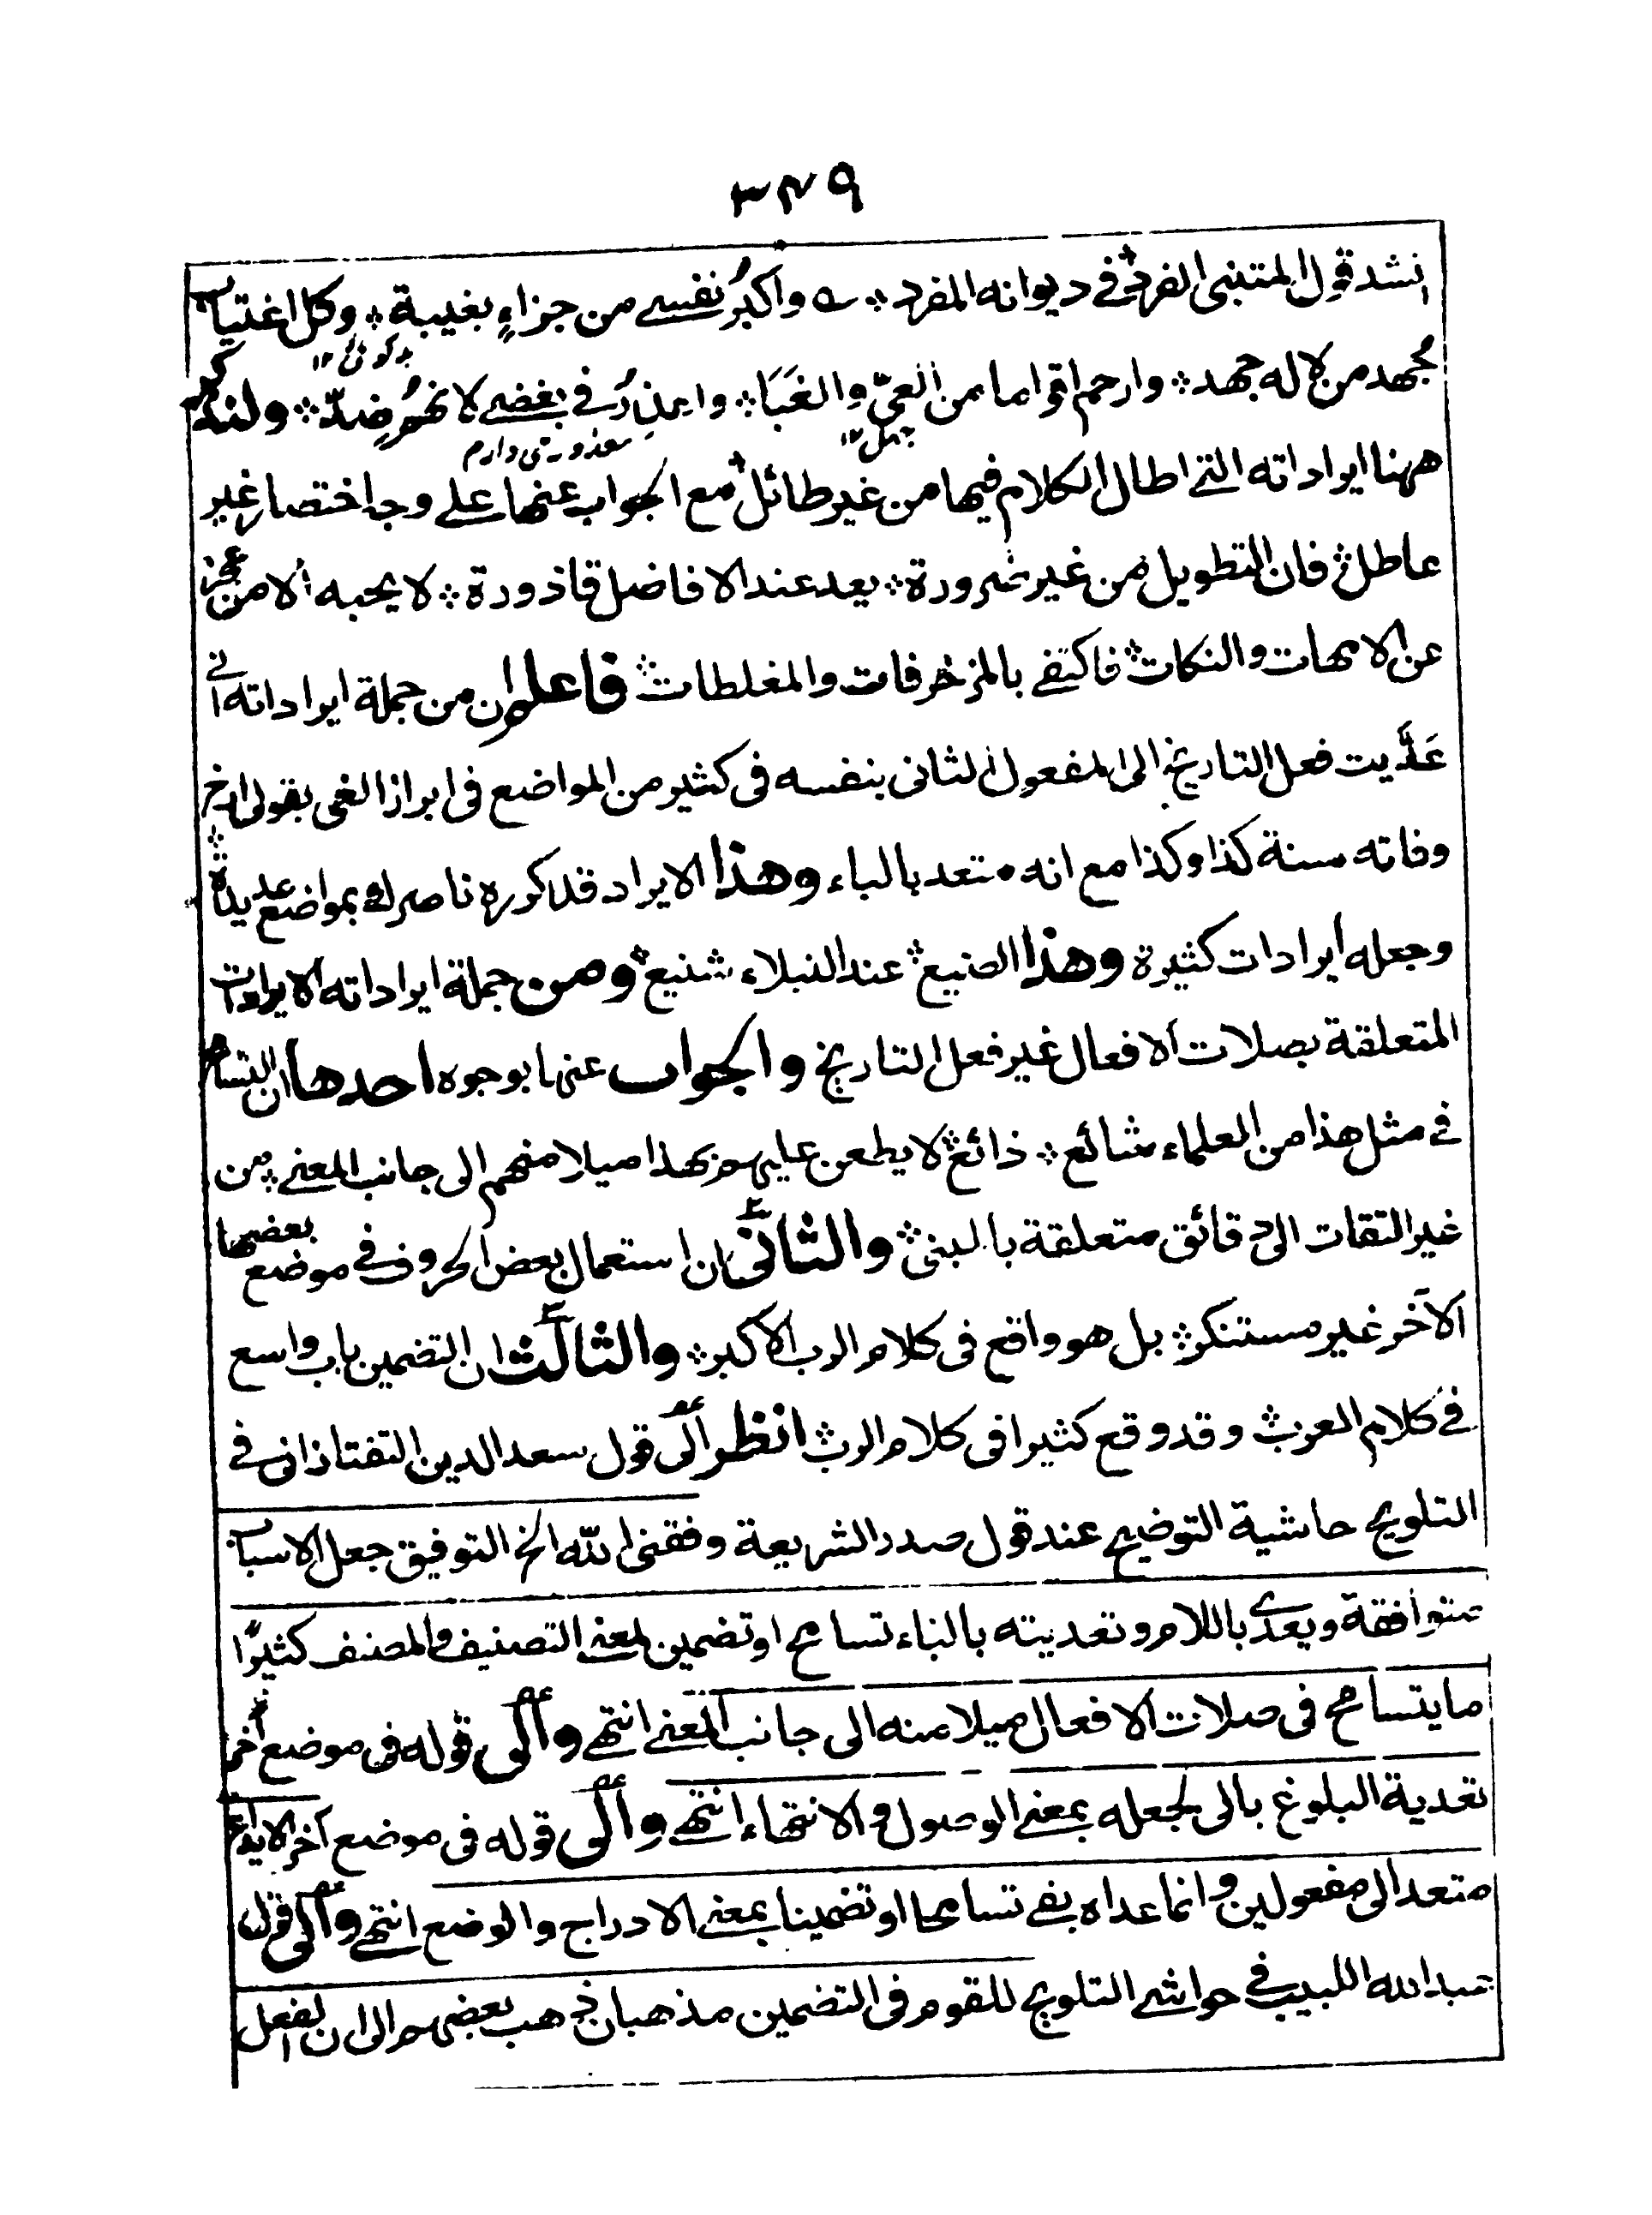 ٣٤٩
انشد قول المتنبى الفرد فى ديوانه المفرد وأكبرُ نفسى من جزاءٍ بغيبة وكل اغتياب
بدگوئى ١٢
جُهد من لا له جهد وارحم اقواما من العىّ والغَبَا واعذِرُ فى بغضى لانهمُ ضدّ ولنذكر
جهل ١٢ معذور مى دارم
ههنا ايراداته التى اطال الكلام فيها من غير طائل مع الجواب عنها على وجه اختصار غير
عاطل فان التطويل من غير ضرورة يعد عند الافاضل قاذورة لا يحبه الا من عجز
عن الامهات والنكات فاكتفى بالمزخرفات والمغلطات فاعلم ان من جملة ايراداته انى
عَدَّيت فعل التاريخ الى المفعول الثانى بنفسه فى كثير من المواضع فى ابراز الغى بقولى ارخ
وفاته سنة كذا وكذا مع انه متعد بالباء وهذا الايراد قد كرره ناصرك بمواضع عديدة
وجعله ايرادات كثيرة وهذا الصنيع عند النبلاء شنيع ومن جملة ايراداته الايرادات
المتعلقة بصلات الافعال غير فعل التاريخ والجواب عنها بوجوه احدها ان التسامح
فى مثل هذا من العلماء شائع ذائع لا يطعن عليهم بهذا ميلا منهم الى جانب المعنى من
غير التفات الى دقائق متعلقة بالمبنى والثانى ان استعمال بعض الحروف فى موضع بعضها
الآخر غير مستنكر بل هو واقع فى كلام الرب الاكبر والثالث ان التضمين باب واسع
فى كلام العرب وقد وقع كثيرا فى كلام الرب انظر الى قول سعد الدين التفتازانى فى
التلويح حاشية التوضيح عند قول صدر الشريعة وفقنى الله الخ التوفيق جعل الاسباب
متوافقة ويعدى باللام وتعديته بالباء تسامح او تضمين لمعنى التصنيف والمصنف كثيرًا
ما يتسامح فى صلات الافعال ميلا منه الى جانب المعنى انتهى والى قوله فى موضع آخر
تعدية البلوغ بالى لجعله بمعنى الوصول والانتهاء انتهى والى قوله فى موضع آخر الايداع
متعد الى مفعولين وانما عداه بفى تسامحا او تضمينا بمعنى الادراج والوضع انتهى والى قول
عبد الله اللبيب فى حواشى التلويح للقوم فى التضمين مذهبان ذهب بعضهم الى ان الفعل